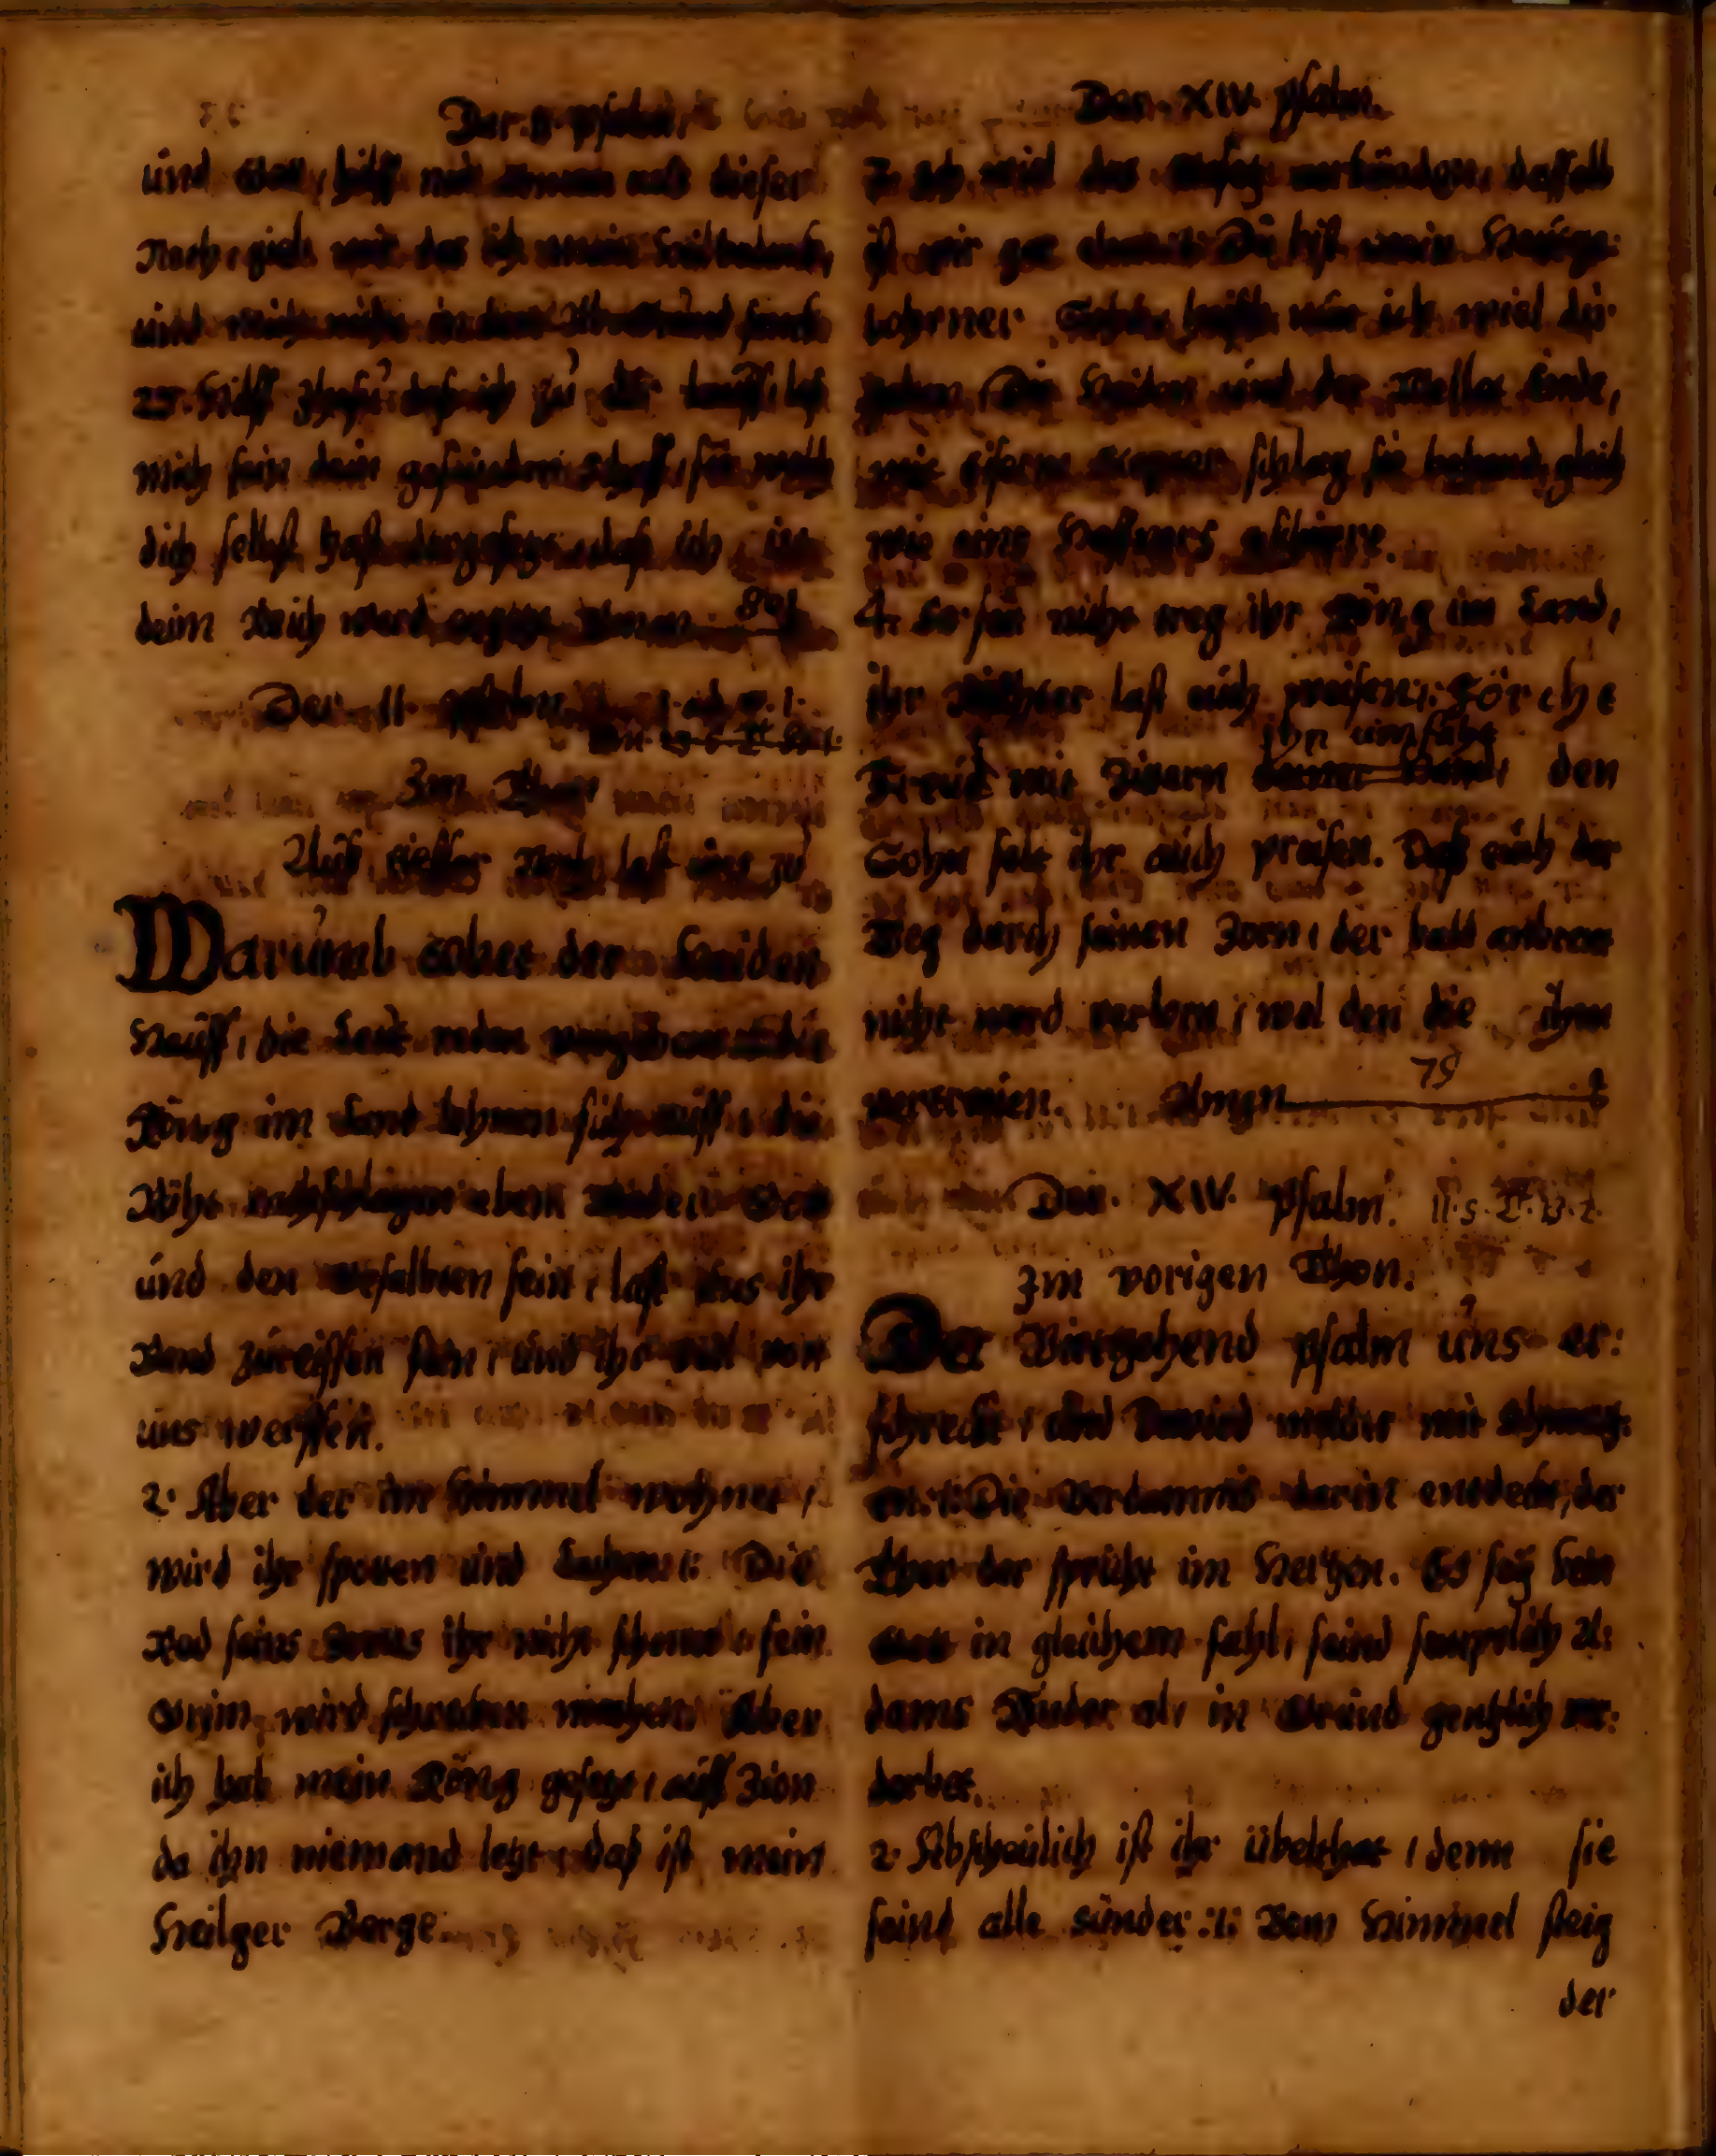 Der. II. Psalm.
und Gott, hilff mir armen aus dieser
Noth, gieb mir das ich mein
und mich nicht in den Abgrund senck
25. Hilff Jhesu das ich zu dir lauff, laß
mich sein dein gefunden Schaff, für welch
dich selbst hast dargesetzt, das ich in
dein Reich werd Amen. 80
Der II. psalm.
Im Thon
Auß tieffer Noth last uns zu
Warumb tobet der Heiden
Hauff, die Leut reden vergebens: die
König im Land lehnen sich auff, die
Räht rathschlagen eben Wider Gott
und den Gesalbten sein, last uns ihr
Band zureissen fein, und ihr seil von
uns werffen.
2. Aber der im Himmel wohnet,
wird ihr spotten und Lachen:: Die
Rod seins Zorns ihr nicht schonet, sein
Grim wird schrecken machen. Aber
ich hab mein König gesetzt, auff Zion
da ihn niemand letzt, daß ist mein
Heilger Berge.
Der. XIV. Psalm.
3. Ich wiel das Gesetz verkündgen, dasselb
ist mir gar Du bist mein Neuge:
bohrner Sohn, heisch von mir ich wiel dir
geben, Die Heiden und der Wellet Ende,
mit eisern Scepter schlag sie behend, gleich
wie eins Haffners geschirre.
4. So seit nicht weg ihr König im Land,
ihr Richter last euch weisen:: Förcht
ihn umfaht
Freud mit Zitern den
Sohn solt ihr auch preisen. Daß euch der
Weg durch seinen Zorn, der bald anbrent
nicht werd verlorn, wol den die ihm
vertrauen. Amen 79
Der. XIV. Psalm. 11. s. T. B. 2.
Im vorigen Thon.
Der Viergehend psalm uns er:
schreckt, und David meldet mit schmertz:
en:: Die Verdamnis darin entdeckt, der
Thor der spricht im Hertzen. Es sey kein
Gott in gleichem fahl, seind semptlich A:
dams Kinder al, in Grund gentzlich ver:
derbet.
2. Abscheulich ist ihr übelthat, denn sie
seind alle sünder :: Vom Himmel steig
der